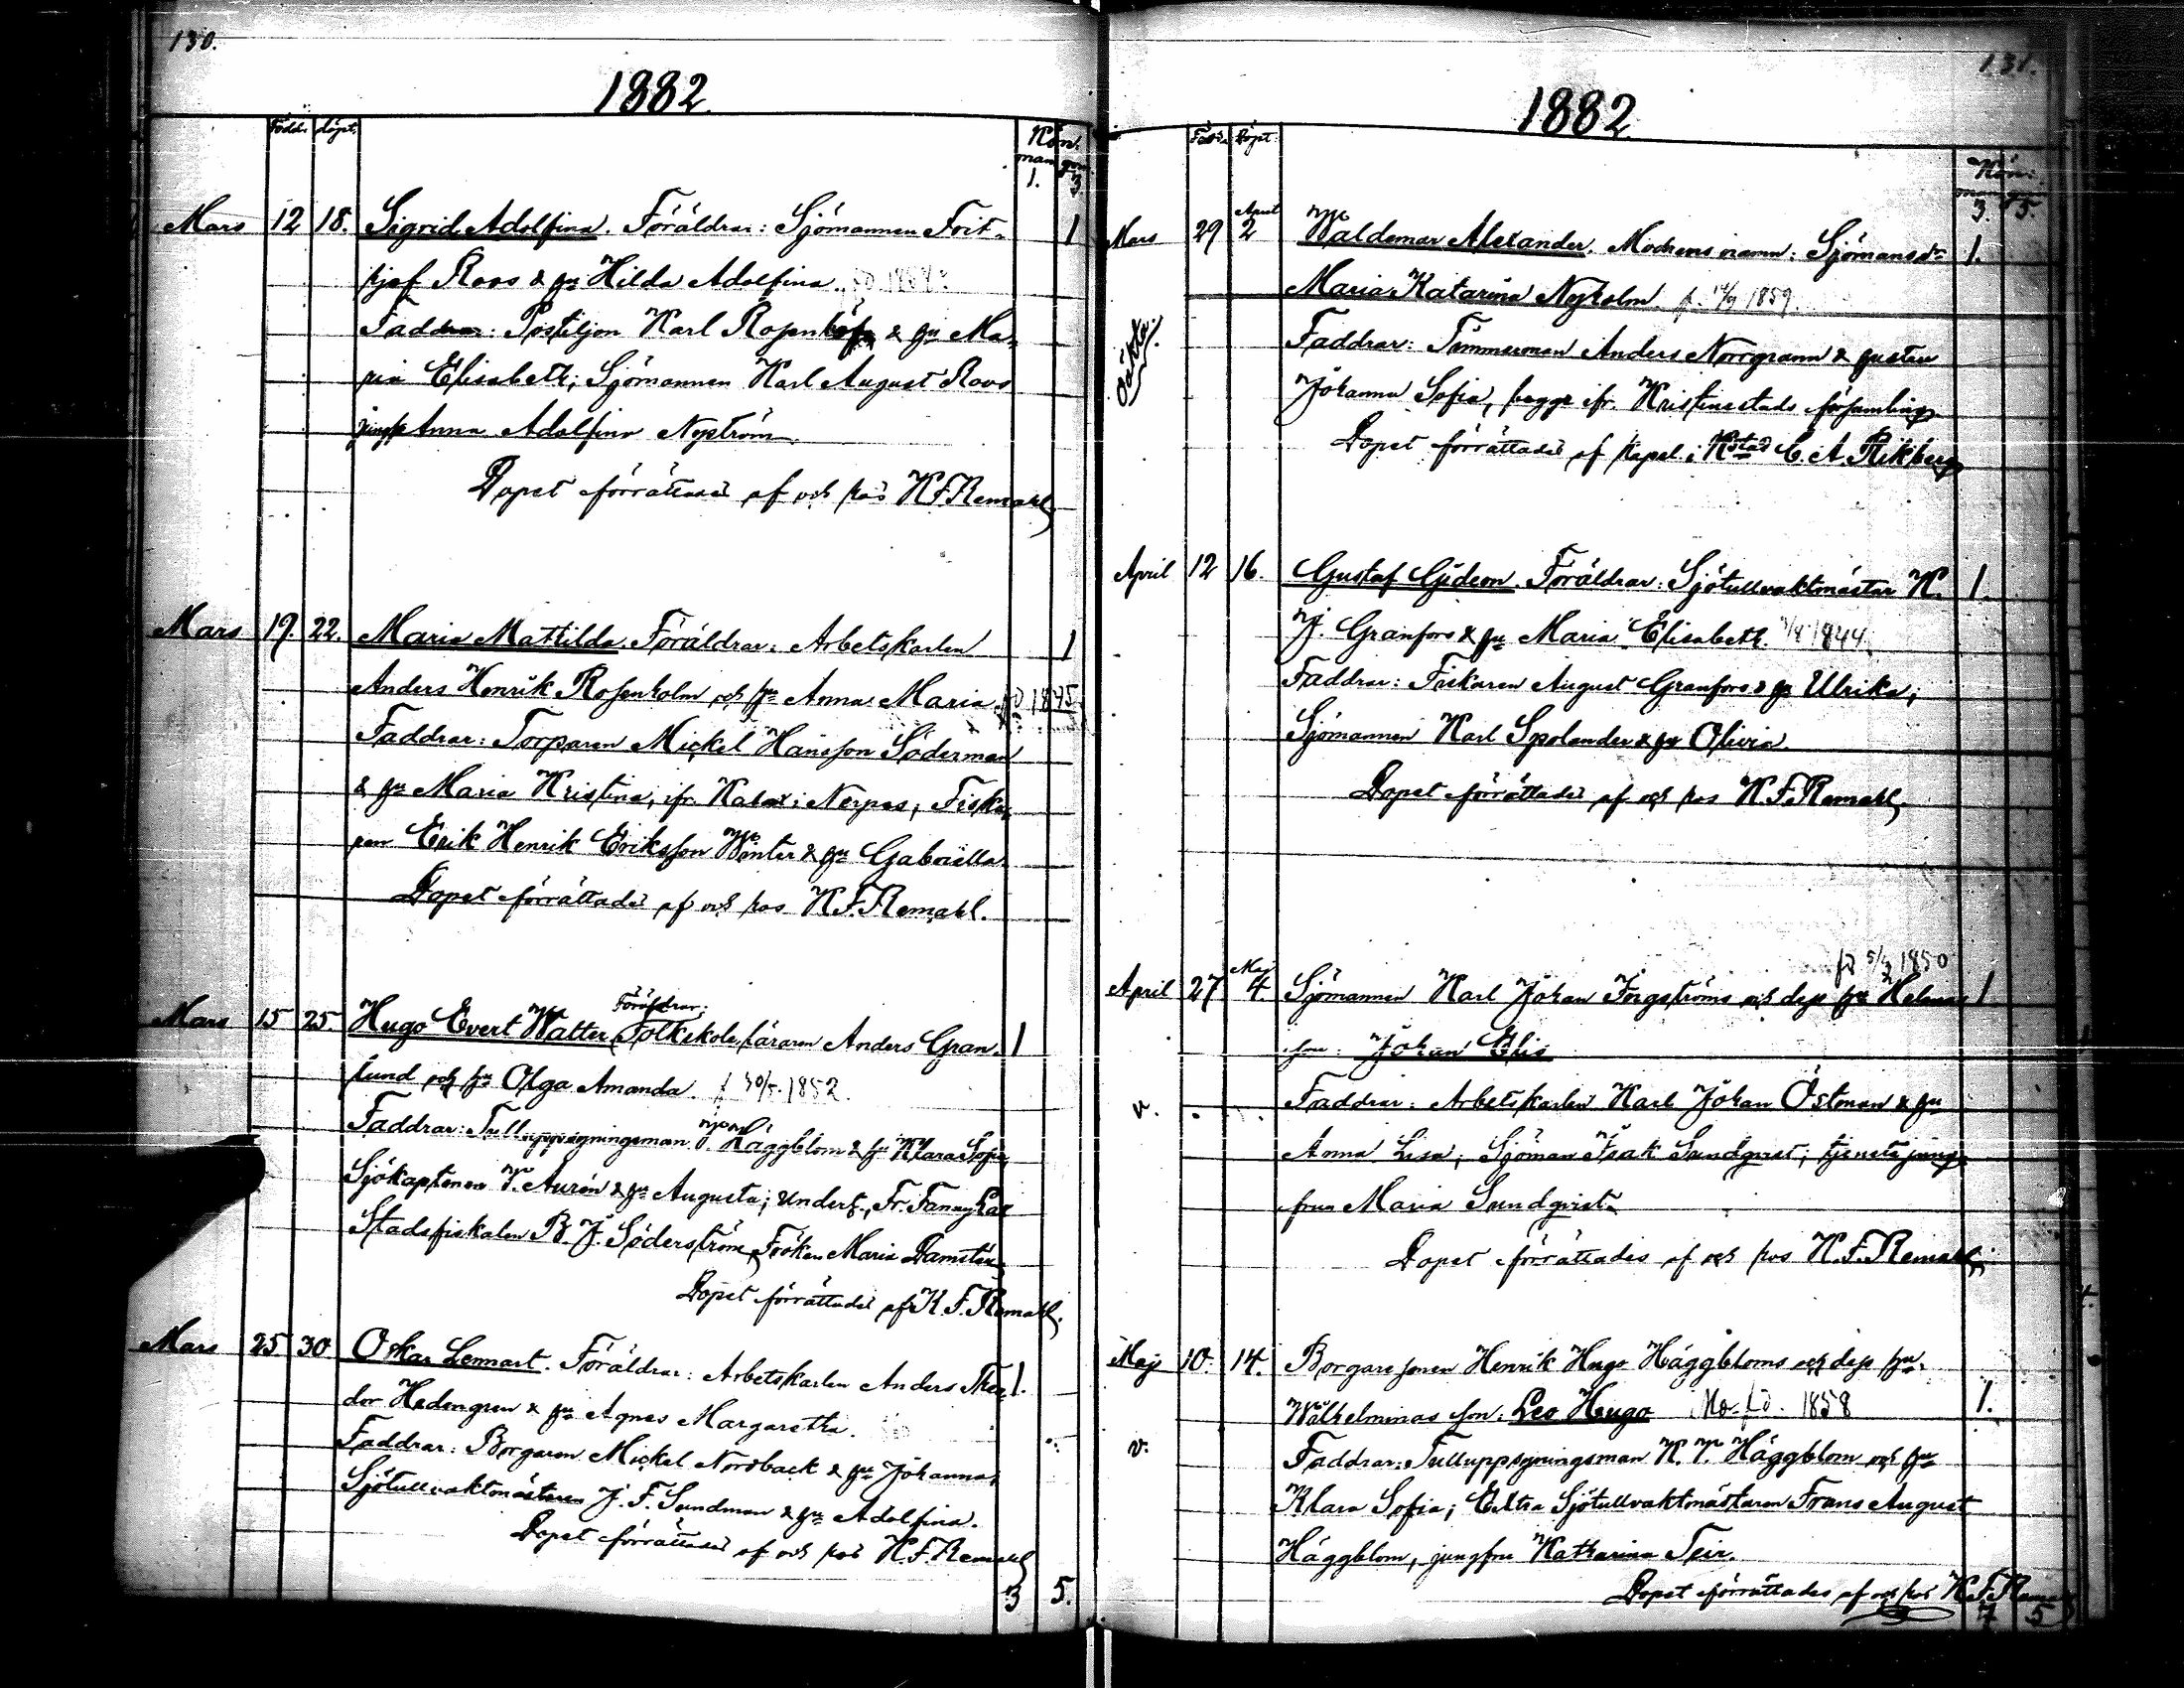 130.
1882
Född. döpt.
Kön.
man qvin.
1. 3.
Mars 12 18. Sigrid Adolfina. Föräldrar: Sjömannen Frit- 1
jof Roos & hu Hilda Adolfina.
Faddrar: Postiljon Karl & hu Ma-
ria Elisabeth; Sjömannen Karl August Roos
jungf Anna Adolfina Nyström.
Dopet förrättades af och hos K.F. Remahl
Mars 19. 22. Maria Mathilda. Föräldrar: Arbetskarlen 1
Anders Henrik Rosenholm och hu Anna Maria. fd 1845
Faddrar: Torparen Mickel Hansson Söderman
& hu Maria Kristina, ifr. Kalax i Nerpes, Fiska-
ren Erik Henrik Eriksson Winter & hu Gabriella.
Dopet förrättades af och hos K.F. Remahl.
Föräldrar:
Mars 15 25 Hugo Evert Walter Folkskoleläraren Anders Gran- 1
lund och hu Olga Amanda. f 30/5 1852.
Faddrar: Tulluppsyningsman Häggblom & hu Klara Sofia,
Sjökaptenen V. Aurén & hu Augusta; Undert., Fr. Fanny
Stadsfiskalen B. J. Söderström, Fröken Maria Damstén
Dopet förrättades af K. F. Remahl.
Mars 25 30 Oskar Lennart. Föräldrar: Arbetskarlen Anders Theo- 1.
dor Hedengren & hu Agnes Margaretha.
Faddrar: Borgaren Mickel Nordback & hu Johanna,
Sjötullvaktmästaren J. F. Sundman & hu Adolfina.
Dopet förrättades af och hos K.F. Remahl
3 5.
131.
1882
Född Döpt.
Kön:
man qvi
3. 5.
April
Mars 29 2 Waldemar Alexander. Modrens namn: Sjömansdr 1.
Maria Katarina Nyholm. f. 14/9 1859.
Oäkta.
Faddrar: Timmerman Anders Norrgrann & hustru
Johanna Sofia, begge ifr. Kristinestads församling
Dopet förrättades af Kapel. i Kstad C. A. Rikberg
April 12 16. Gustaf Gideon. Föräldrar: Sjötullvaktmästar K. 1.
J. Granfors & hu Maria Elisabeth. 1844.
Faddrar: Fiskaren August Granfors & hu Ulrika;
Sjömannen Karl Spolander & hu Olivia.
Dopet förrättades af och hos K.F. Remahl.
fd 5/3 1850
Maj
April 27 4. Sjömannen Karl Johan Forgströms och dess hu Helenas 1
son: Johan Elis
v. Faddrar: Arbetskarlen Karl Johan Östman & hu
Anna Lisa; Sjöman Isak Sundqvist; tjenste jung-
frun Maria Sundqvist.
Dopet förrättades af och hos K.F. Remahl.
Maj 10. 14. Borgaresonen Henrik Hugo Häggbloms och dess hu
Wilhelminas son: Leo Hugo Mo. fd. 1858 1.
v. Faddrar: Tulluppsyningsman K. V. Häggblom och hu
Klara Sofia; Extra Sjötullvaktmästaren Frans August
Häggblom, jungfru Katharina Teir.
Dopet förrättades af och hos K.F. Remahl
7 5